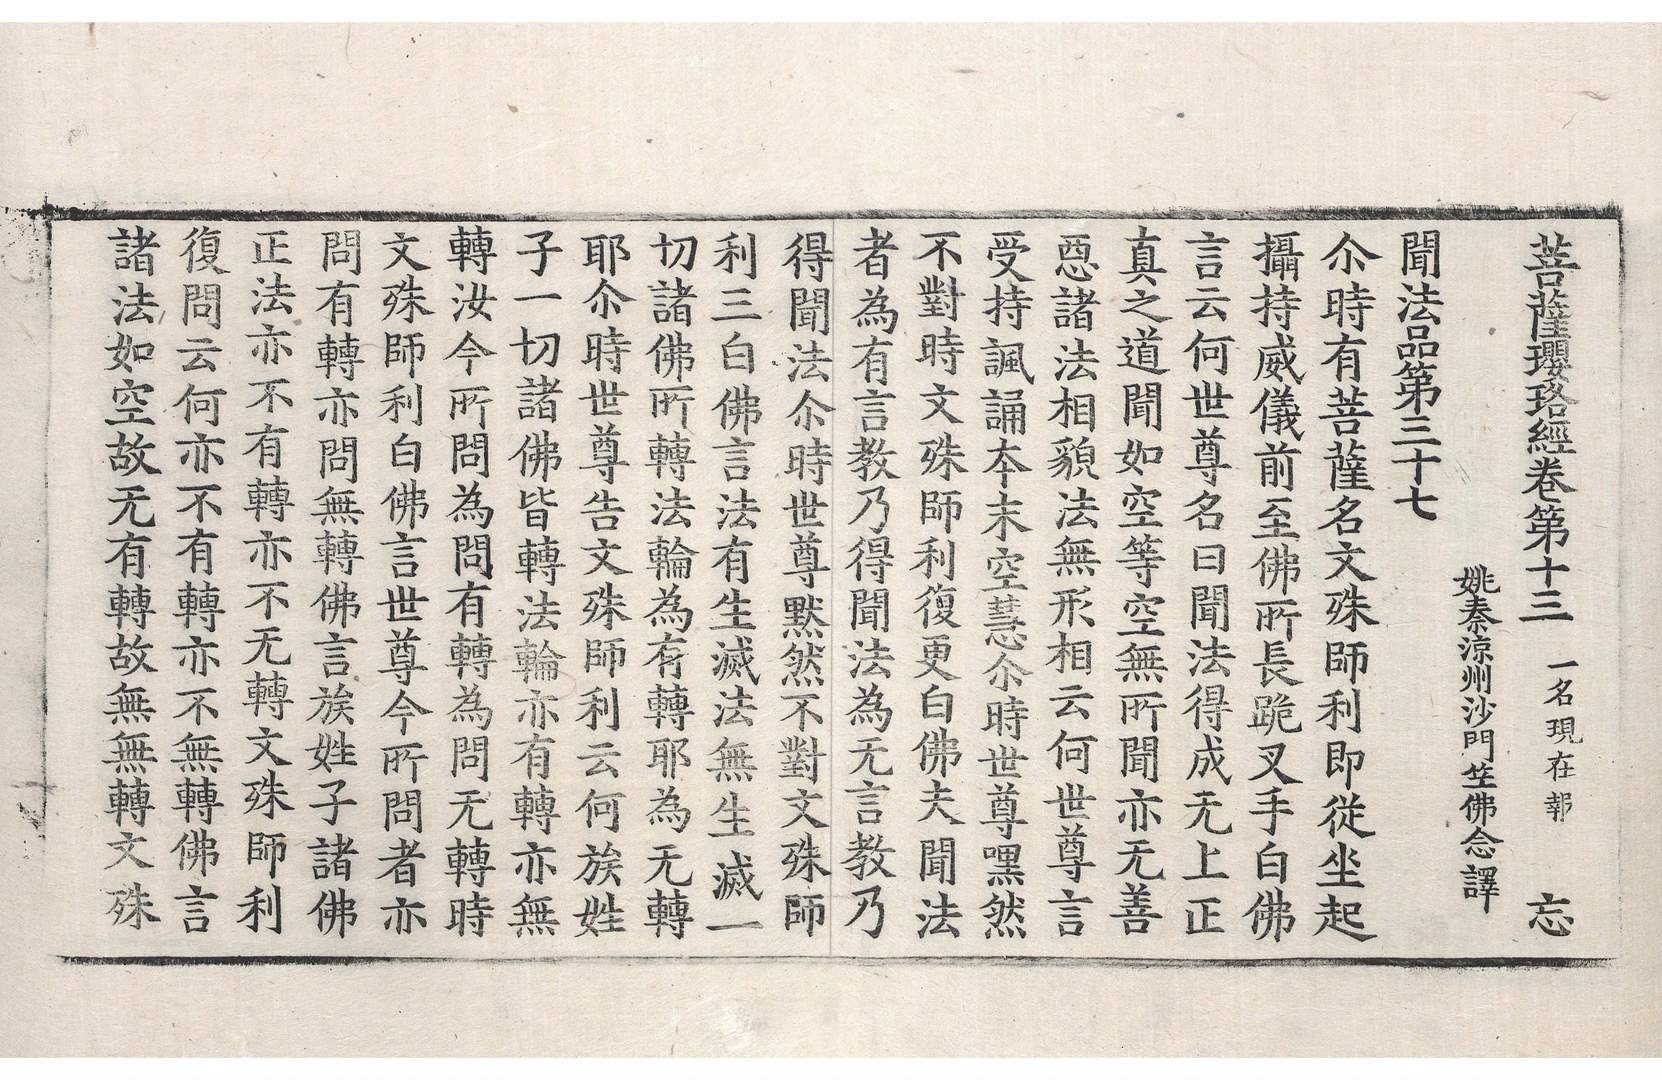 菩薩瓔珞經卷第十三 一名現在報 忘
姚秦涼州沙門竺佛念譯
聞法品第三十七
尒時有菩薩名文殊師利即從坐起
攝持威儀前至佛所長跪叉手白佛
言云何世尊名曰聞法得成无上正
真之道聞如空等空無所聞亦无善
惡諸法相貌法無形相云何世尊言
受持諷誦本末空慧尒時世尊嘿然
不對時文殊師利復更白佛夫聞法
者為有言教乃得聞法為无言教乃
得聞法尒時世尊默然不對文殊師
利三白佛言法有生滅法無生滅一
切諸佛所轉法輪為有轉耶為无轉
耶尒時世尊告文殊師利云何族姓
子一切諸佛皆轉法輪亦有轉亦無
轉汝今所問為問有轉為問无轉時
文殊師利白佛言世尊今所問者亦
問有轉亦問無轉佛言族姓子諸佛
正法亦不有轉亦不无轉文殊師利
復問云何亦不有轉亦不無轉佛言
諸法如空故无有轉故無無轉文殊